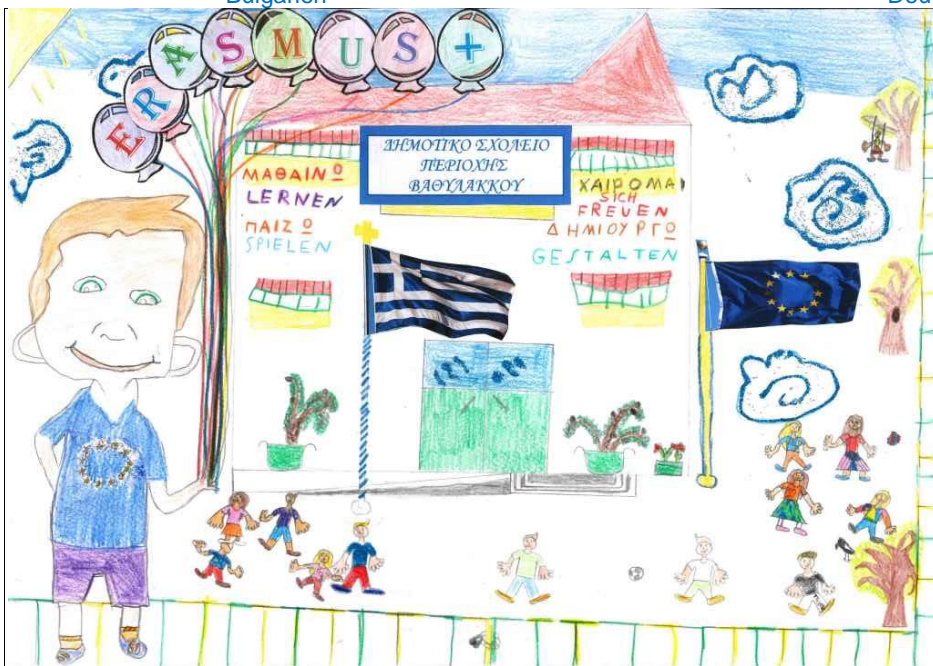 Bulgarien
ERASMUS+
ΔΗΜΟΤΙΚΟ ΣΧΟΛΕΙΟ
ΠΕΡΙΟΧΗΣ
ΒΑΘΥΛΑΚΚΟΥ
ΜΑΘΑΙΝΩ
LERNEN
ΠΑΙΖΩ
SPIELEN
ΧΑΙΡΟΜΑΙ
SICH
FREUEN
ΔΗΜΙΟΥΡΓΩ
GESTALTEN